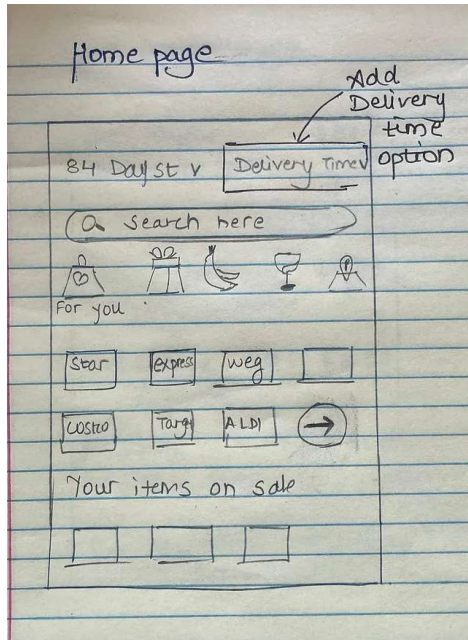 Home page
Add
Delivery
time
option
84 Day st v Delivery Time v
search here
For you
Star express weg
Costco Targ ALDI
Your items on sale